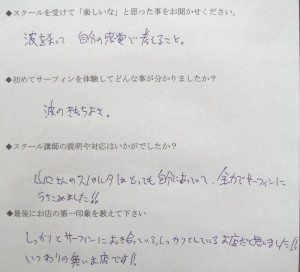 ◆スクールを受けて「楽しいな」と思った事をお聞かせください。
波を 自分の感覚で考えること。
◆初めてサーフィンを体験してどんな事が分かりましたか？
波のきもちよさ。
◆スクール講師の説明や対応はいかがでしたか？
山口さんのスパルタはとっても自分にあっていて、全力でサーフィンに
うちこめました!!
◆最後にお店の第一印象を教えて下さい
しっかりとサーフィンにむき合っている、しっかりとしているお店だと思いました!!
いつわりの無いお店です!!